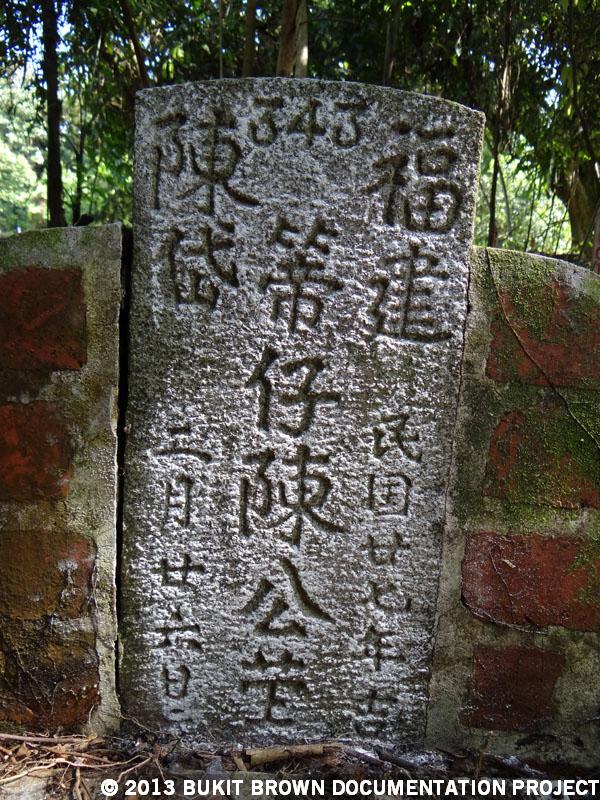 343
福建
民国廿七年吉
仔陳公茔
陳岱
三月廿六日
© 2013 BUKIT BROWN DOCUMENTATION PROJECT